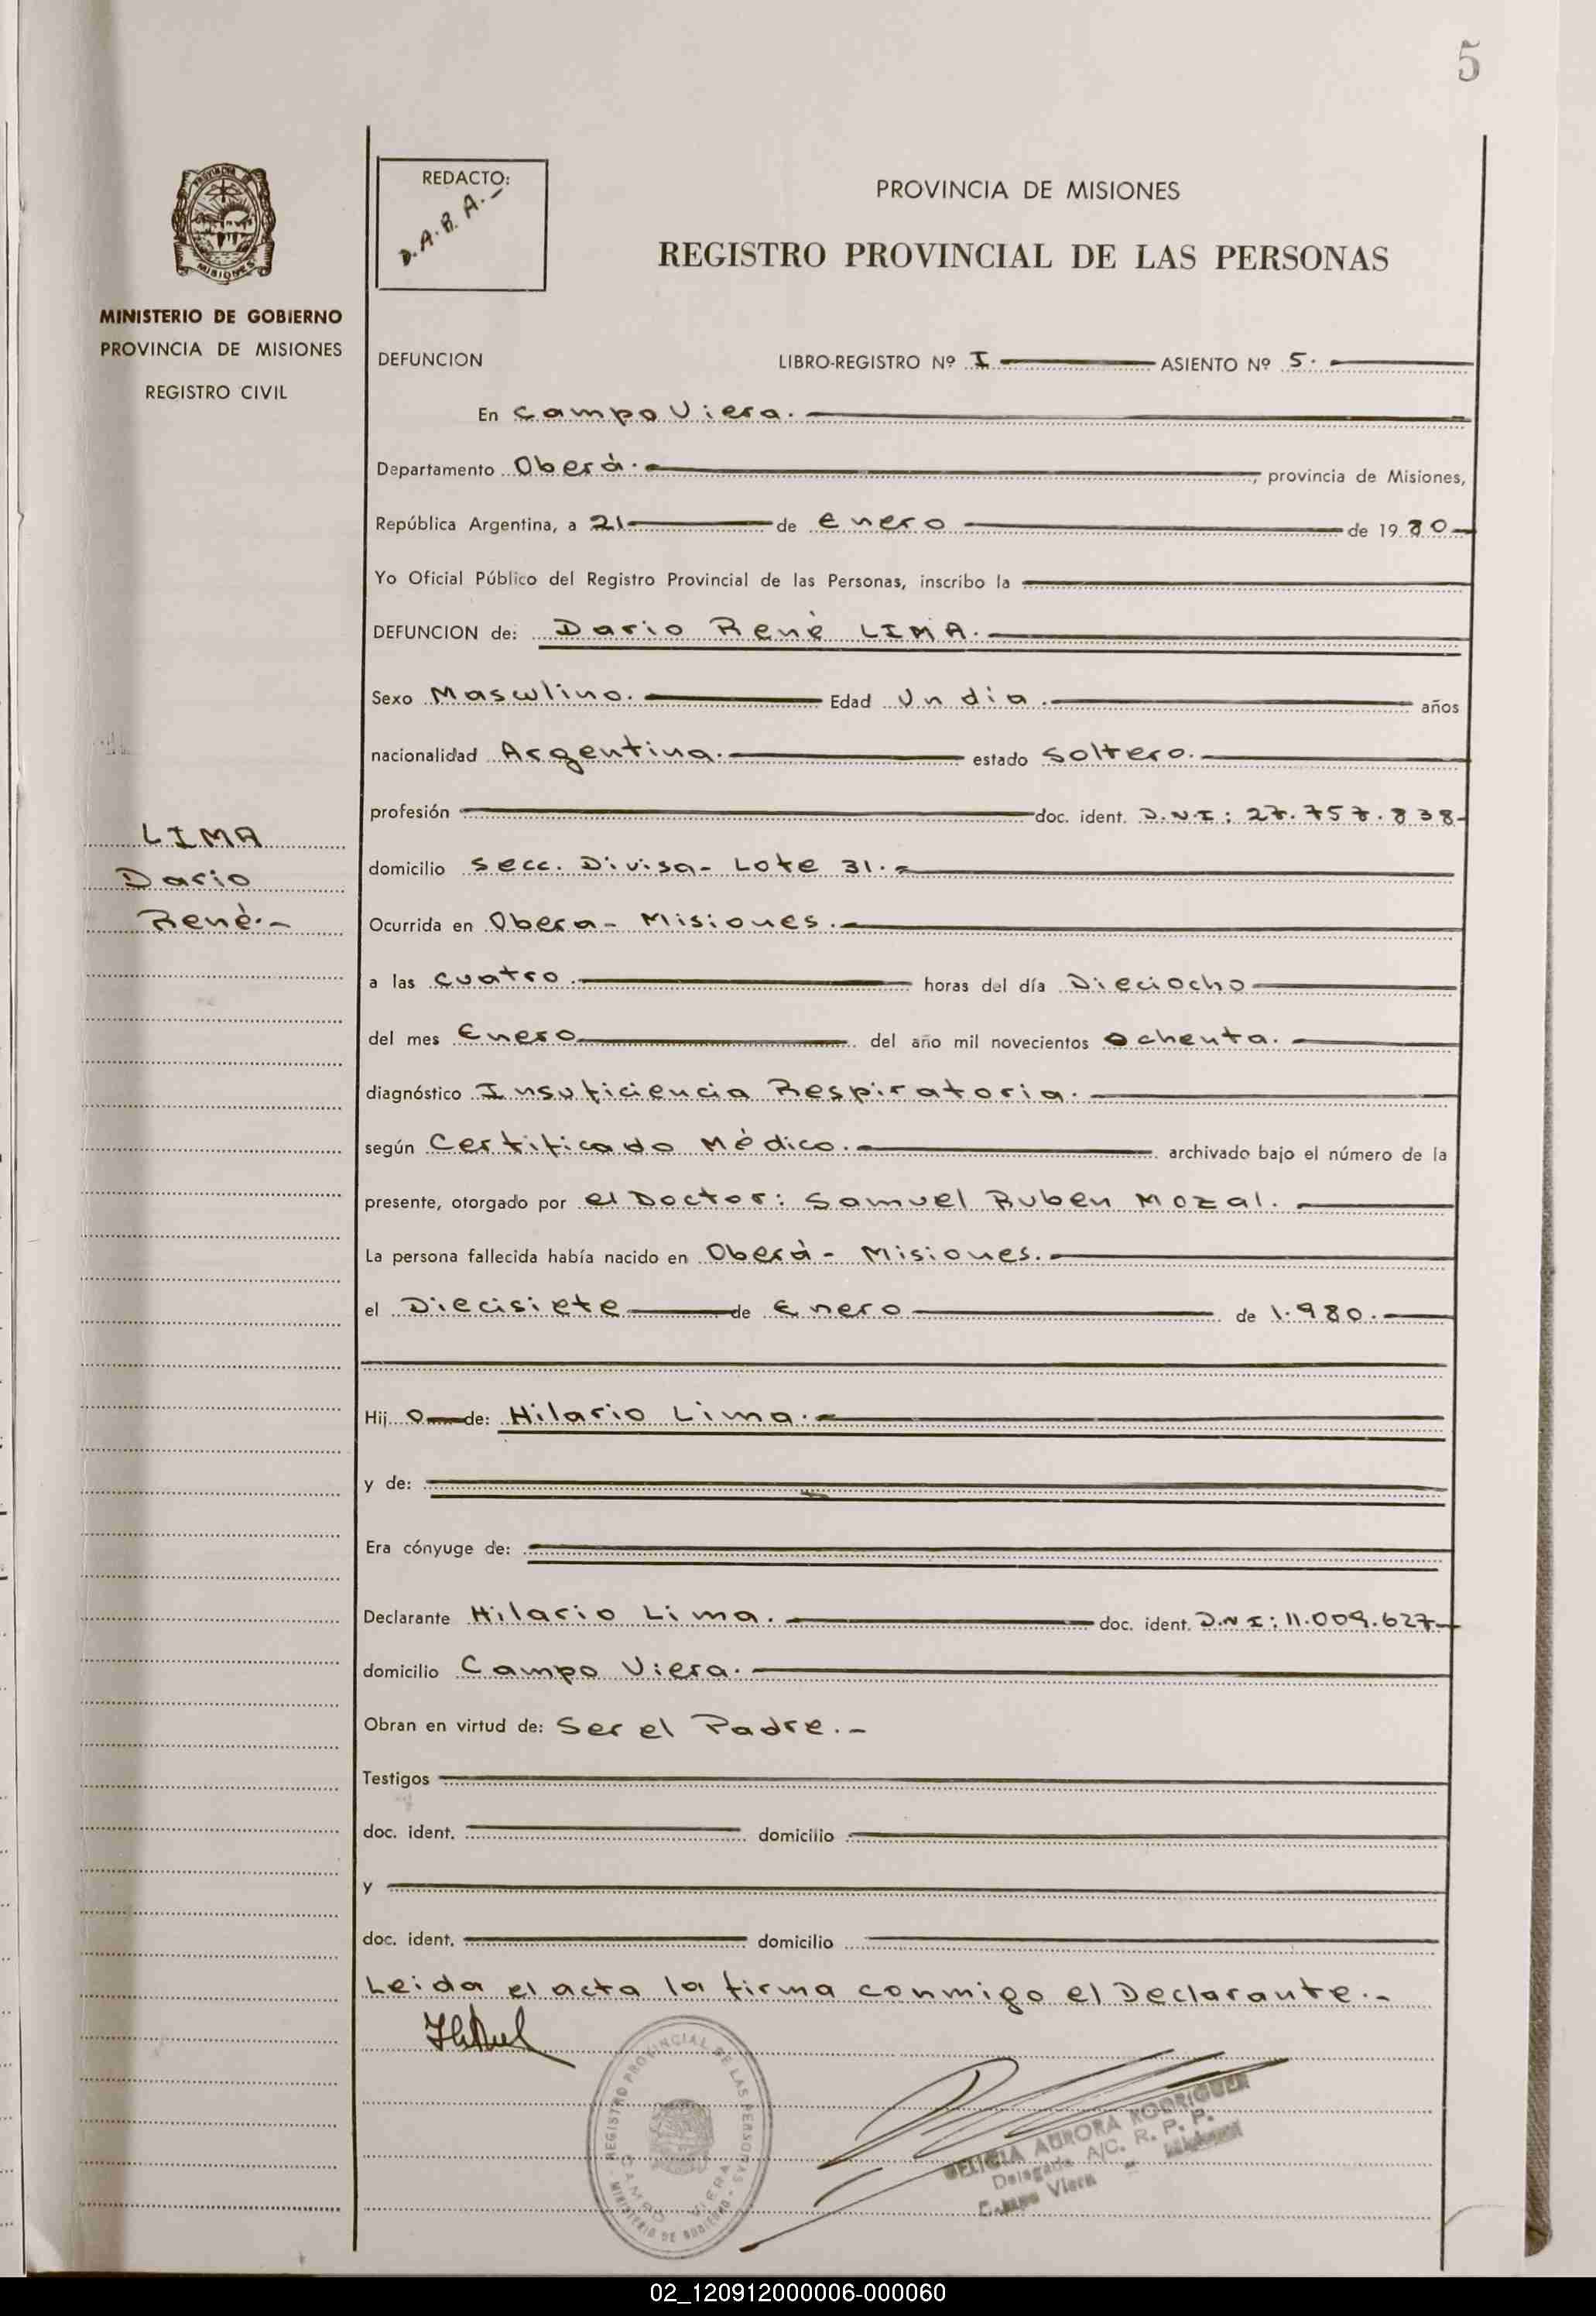 5
REDACTO:
D.A.B.A.-
PROVINCIA DE MISIONES
REGISTRO PROVINCIAL DE LAS PERSONAS
PROVINCIA DE
MISIONES
MINISTERIO DE GOBIERNO
PROVINCIA DE MISIONES
REGISTRO CIVIL
LIMA
Dario
Renè.-
DEFUNCION LIBRO-REGISTRO Nº I ASIENTO Nº 5.
En Campo Viera.
Departamento Oberà. , provincia de Misiones,
República Argentina, a 21 de Enero de 1980
Yo Oficial Público del Registro Provincial de las Personas, inscribo la
DEFUNCION de: Dario Renè LIMA.
Sexo Masculino. Edad Un dia. años
nacionalidad Argentina. estado Soltero.
profesión doc. ident. D.N.I: 27.757.838-
domicilio Secc. Divisa- Lote 31.-
Ocurrida en Obera- Misiones.
a las cuatro. horas del día Dieciocho
del mes Enero del año mil novecientos ochenta.
diagnóstico Insuficiencia Respiratoria.
según Certificado Mèdico. archivado bajo el número de la
presente, otorgado por el Doctor: Samuel Ruben Mozal.
La persona fallecida había nacido en Oberà- Misiones.
el Diecisiete de Enero de 1.980.
Hijo de: Hilario Lima.
y de:
Era cónyuge de:
Declarante Hilario Lima. doc. ident. D.N I: 11.009.627-
domicilio Campo Viera.
Obran en virtud de: Ser el Padre.-
Testigos
doc. ident. domicilio
y
doc. ident. domicilio
Leida el acta la firma conmigo el Declarante.-
REGISTRO PROVINCIAL DE LAS PERSONAS
MINISTERIO DE GOBIERNO
CAMPO VIERA
DELICIA AURORA RODRIGUEZ
Delegada A/C. R. P. P.
Campo Viera - Misiones
02_120912000006-000060